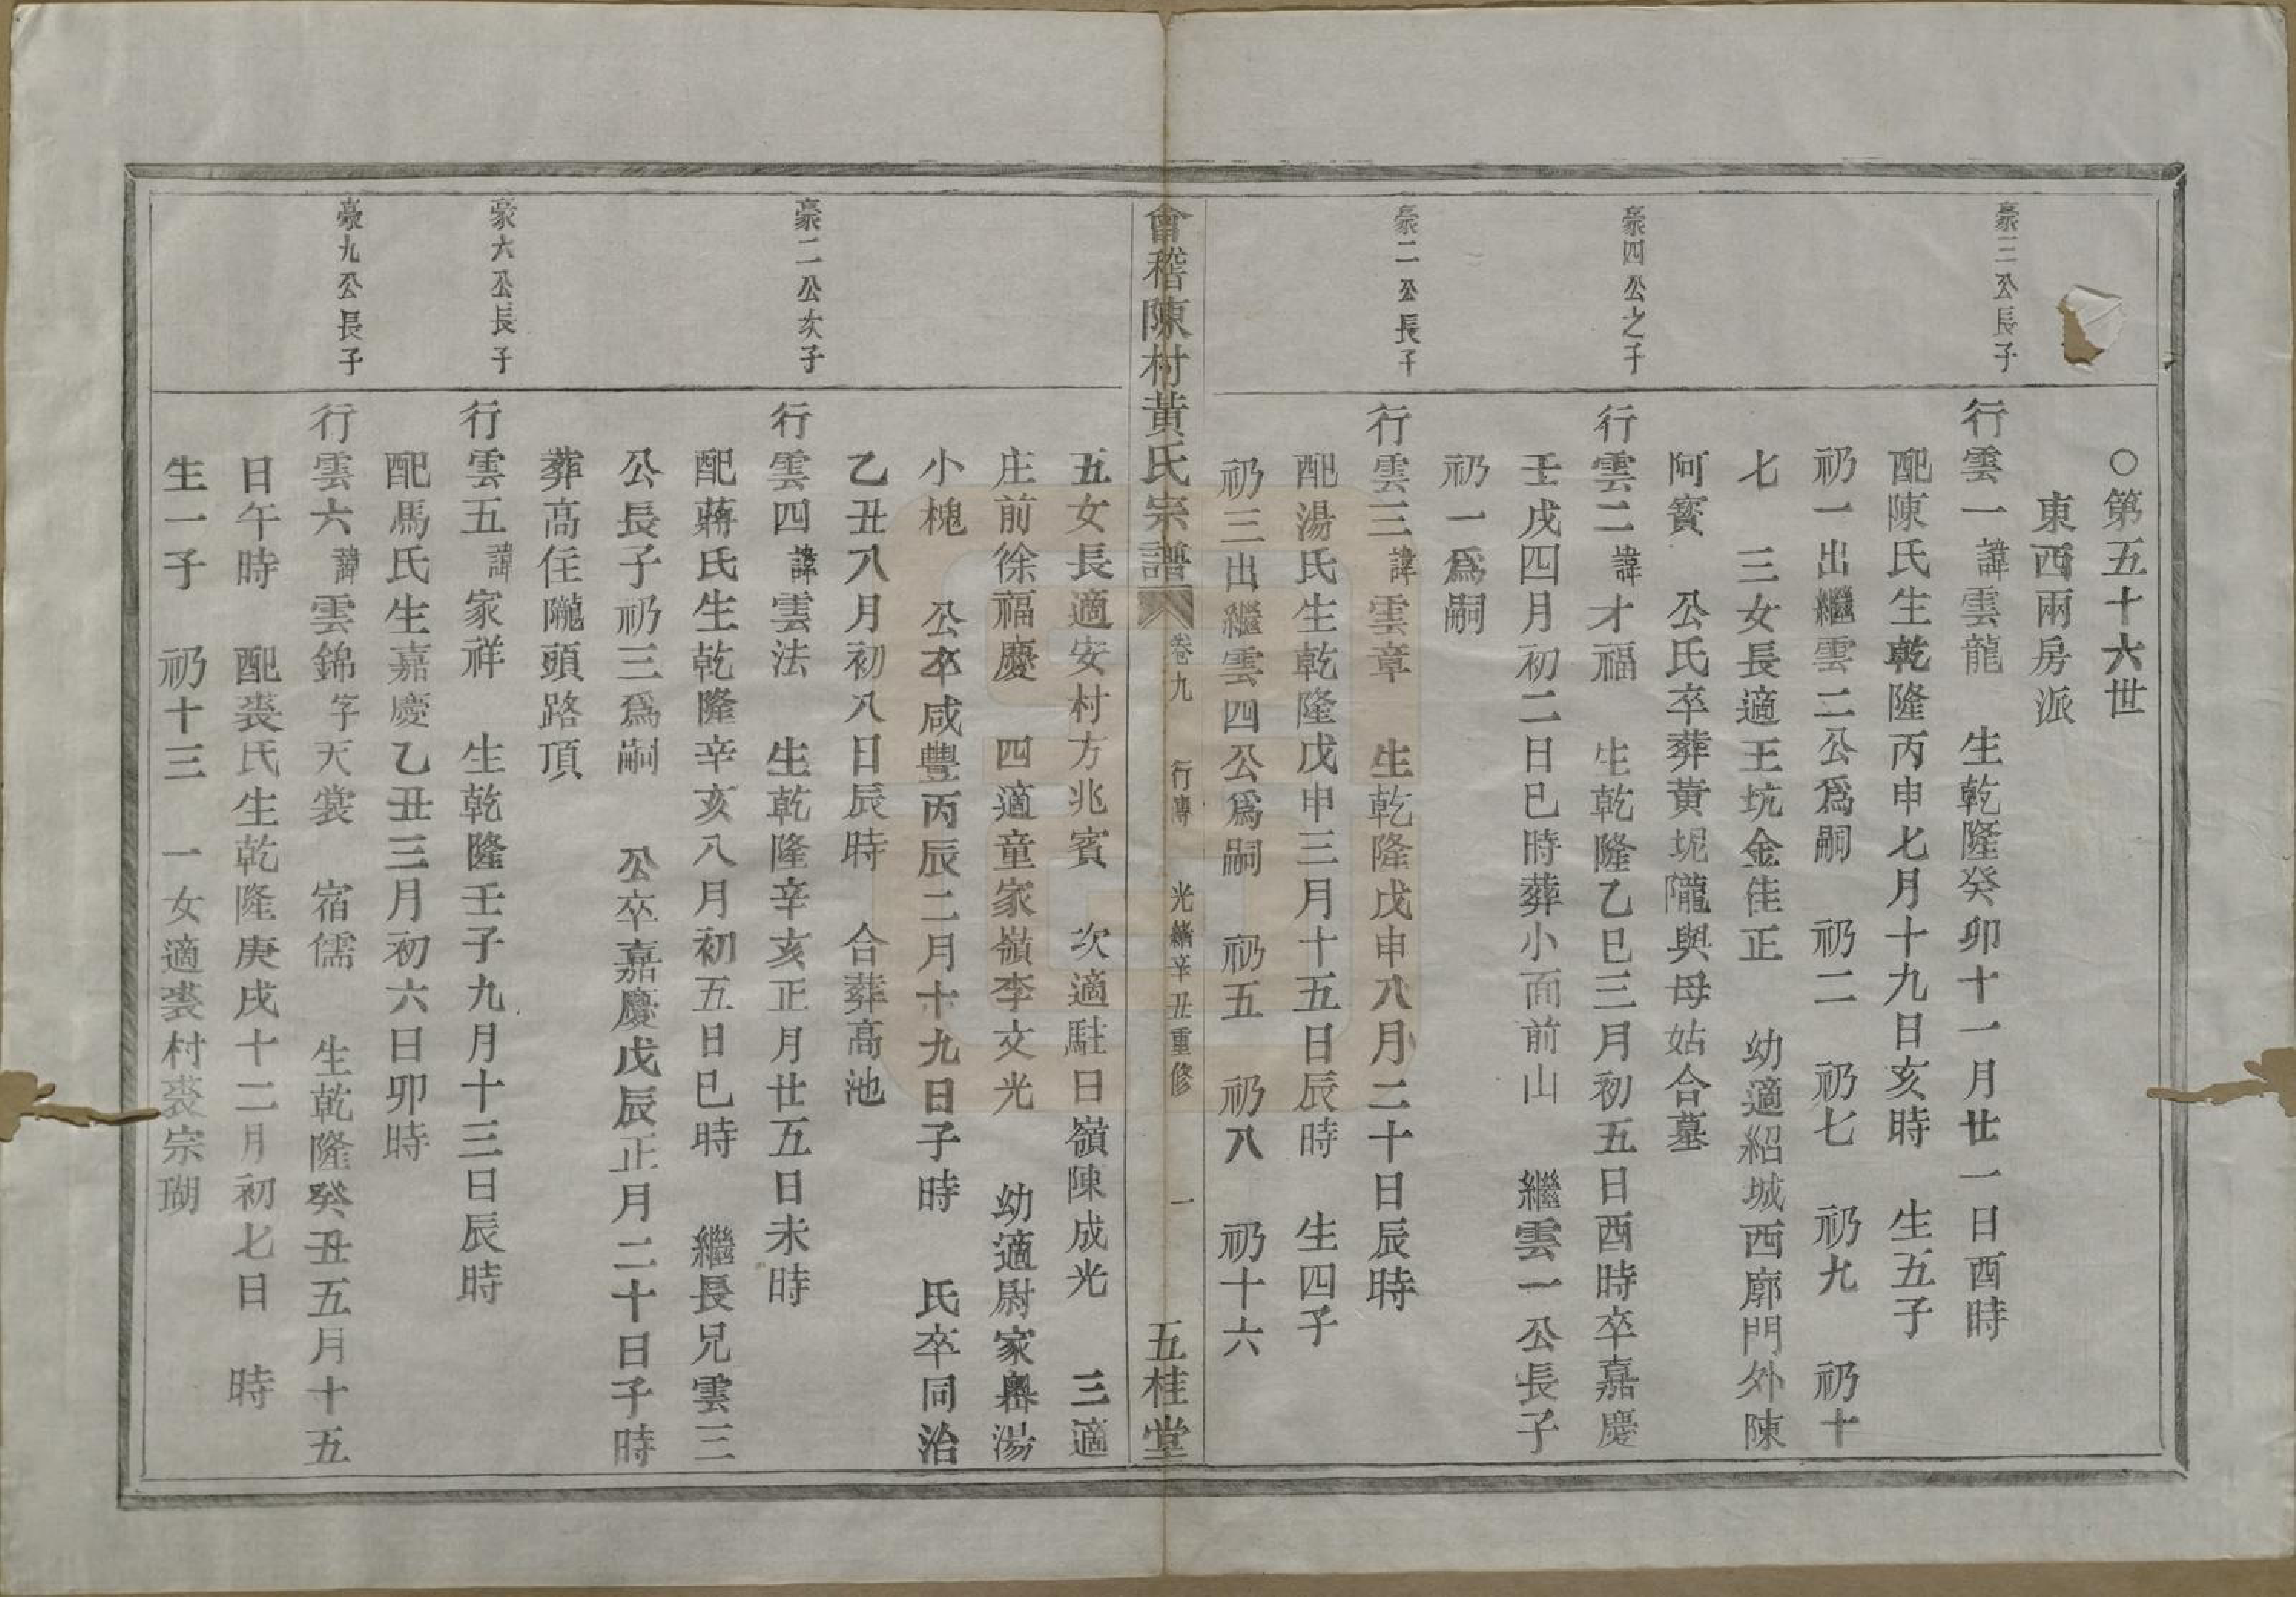 ○第五十六世
東西兩房派
豪三公長子
行雲一諱雲龍　生乾隆癸卯十一月廿一日酉時
配陳氏生乾隆丙申七月十九日亥時　生五子
礽一出繼雲二公爲嗣　礽二　礽七　礽九　礽十
七　三女長適王坑金佳正　幼適紹城西廓門外陳
阿寳　公氏卒葬黄坭隴與母姑合墓
豪四公之子
行雲二諱才福　生乾隆乙巳三月初五日酉時卒嘉慶
壬戌四月初二日巳時葬小面前山　繼雲一公長子
礽一爲嗣
豪二公長子
行雲三諱雲章　生乾隆戊申八月二十日辰時
配湯氏生乾隆戊申三月十五日辰時　生四子
礽三出繼雲四公爲嗣　礽五　礽八　礽十六
會稽陳村黃氏宗譜　卷九　行傳　光緒辛丑重修　一　五桂堂
五女長適安村方兆賓　次適駐日嶺陳成光　三適
庄前徐福慶　四適童家嶺李文光　幼適尉家嶴湯
小槐　公卒咸豐丙辰二月十九日子時　氏卒同治
乙丑八月初八日辰時　合葬高池
豪二公次子
行雲四諱雲法　生乾隆辛亥正月廿五日未時
配蔣氏生乾隆辛亥八月初五日巳時　繼長兄雲三
公長子礽三爲嗣　公卒嘉慶戊辰正月二十日子時
葬高任隴頭路頂
豪六公長子
行雲五諱家祥　生乾隆壬子九月十三日辰時
配馬氏生嘉慶乙丑三月初六日卯時
豪九公長子
行雲六諱雲錦字天裳　宿儒　生乾隆癸丑五月十五
日午時　配裘氏生乾隆庚戌十二月初七日　時
生一子　礽十三　一女適裘村裘宗瑚